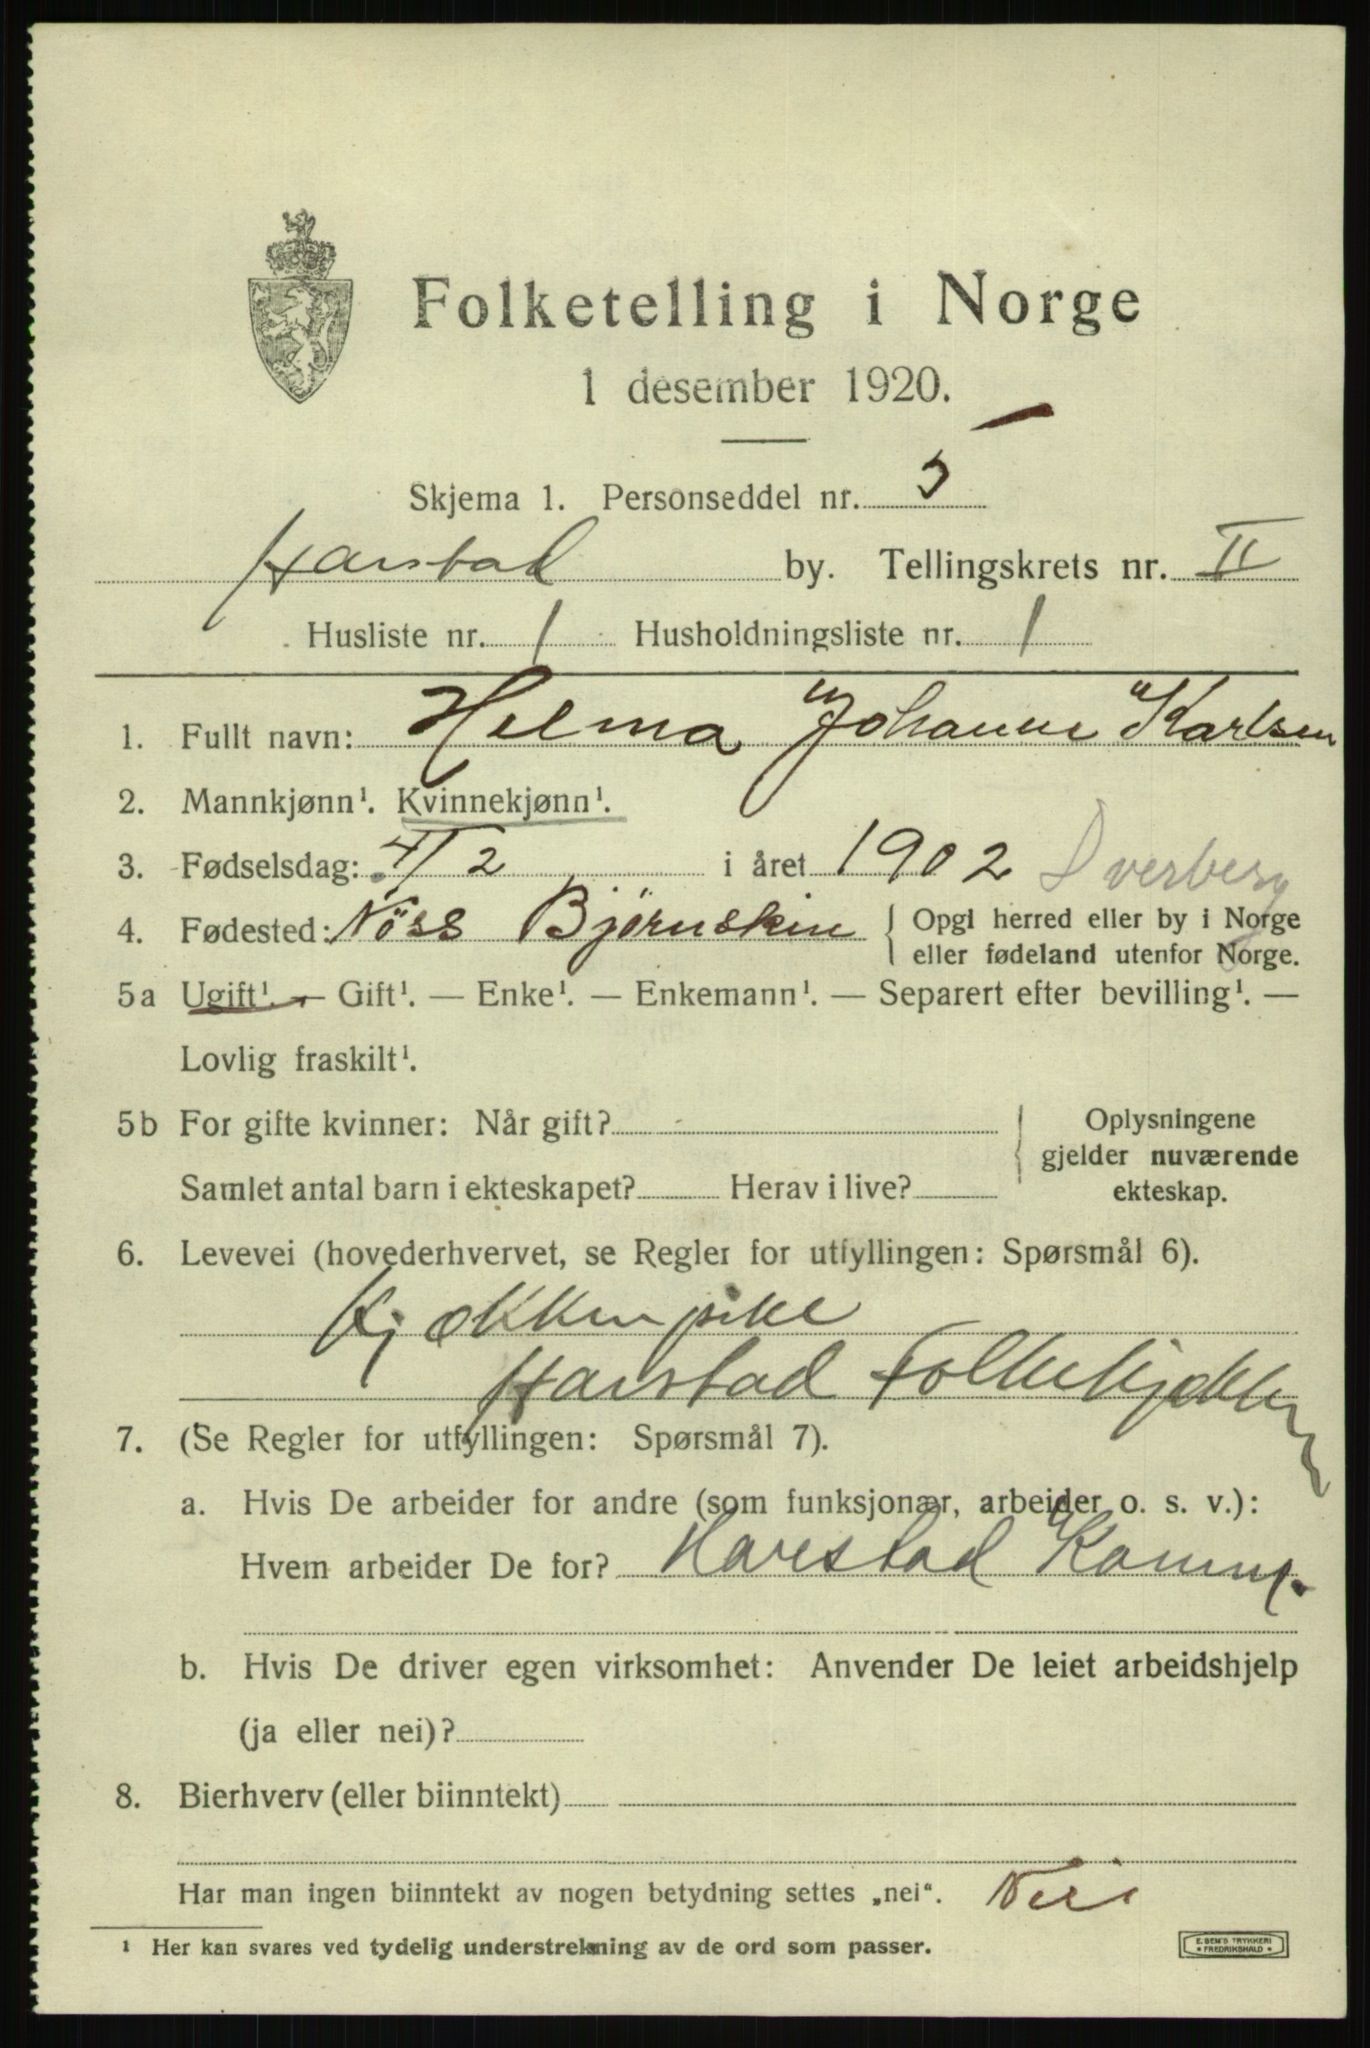 Folketelling i Norge
1 desember 1920.
Skjema 1. Personseddel nr. 5
Harstad by. Tellingskrets nr. II
Husliste nr. 1 Husholdningsliste nr. 1
1. Fullt navn: Helma Johanne Karlsen
2. Mannkjønn¹. Kvinnekjønn¹.
3. Fødselsdag: 4/2 i året 1902 Dverberg
4. Fødested: Nöss Bjørnskin { Opgi herred eller by i Norge
eller fødeland utenfor Norge.
5a Ugift¹. — Gift¹. — Enke¹. — Enkemann¹. — Separert efter bevilling¹. —
Lovlig fraskilt¹.
5b For gifte kvinner: Når gift? { Oplysningene
gjelder nuværende
Samlet antal barn i ekteskapet? Herav i live? ekteskap.
6. Levevei (hovederhvervet, se Regler for utfyllingen: Spørsmål 6).
Kjøkkenpike
Harstad Folkekjøkken
7. (Se Regler for utfyllingen: Spørsmål 7).
a. Hvis De arbeider for andre (som funksjonær, arbeider o. s. v.):
Hvem arbeider De for? Harstad Komm.
b. Hvis De driver egen virksomhet: Anvender De leiet arbeidshjelp
(ja eller nei)?
8. Bierhverv (eller biinntekt)
Har man ingen biinntekt av nogen betydning settes „nei“. Nei
¹ Her kan svares ved tydelig understrekning av de ord som passer.
E. SEM'S TRYKKERI
FREDRIKSHALD